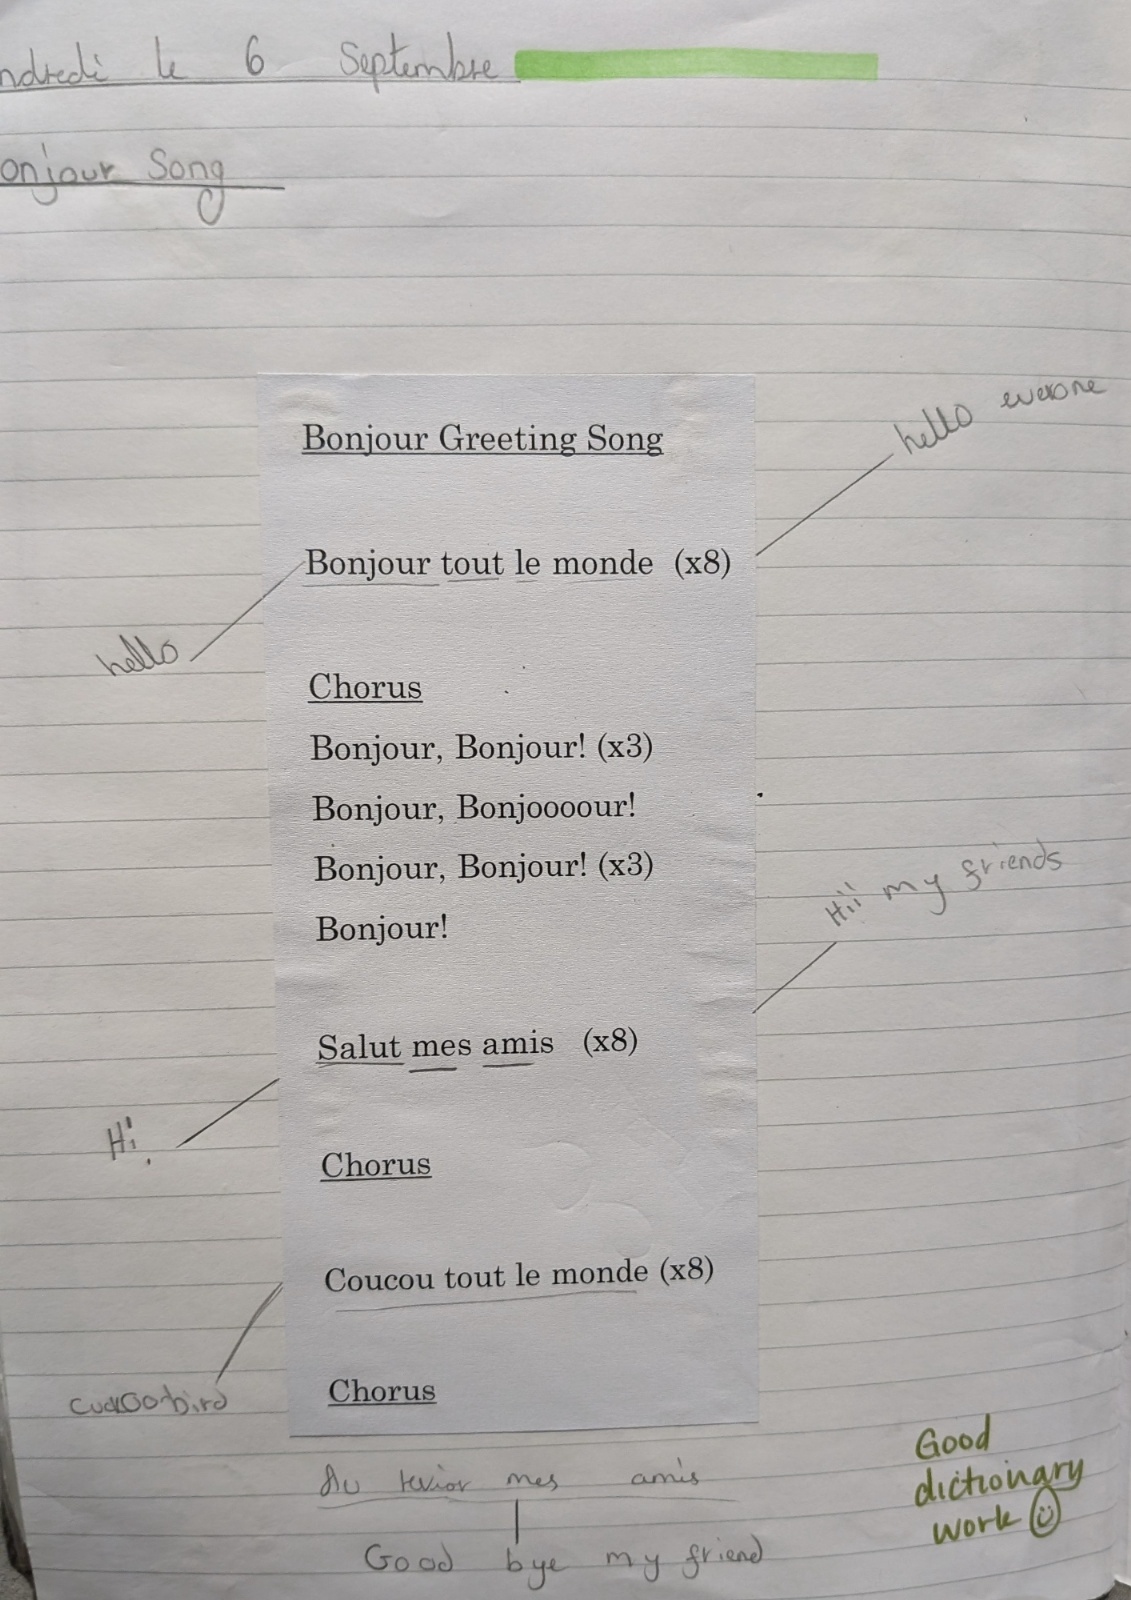 ndredi le 6 Septembre
onjour Song
Bonjour Greeting Song
hello everone
Bonjour tout le monde (x8)
hello
Chorus
Bonjour, Bonjour! (x3)
Bonjour, Bonjoooour!
Bonjour, Bonjour! (x3)
Bonjour!
Hii my friends
Salut mes amis (x8)
Hi
Chorus
Coucou tout le monde (x8)
Chorus
Au revior mes amis
Good bye my friend
Good
dictionary
work